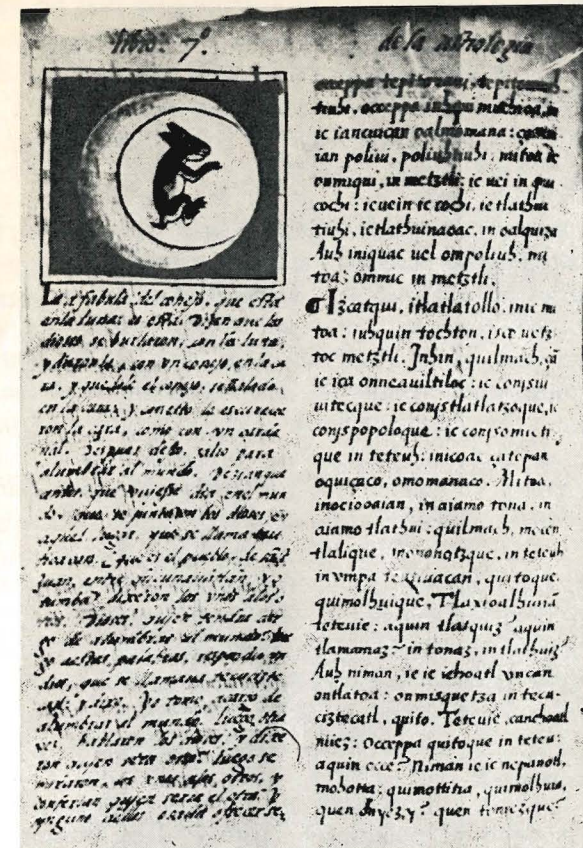 libro. 7º.
de la astrologia
La fabula del conejo, que esta
en la luna: es esta. Dizen que los
dioses, se burlaron, con la luna,
y dieronla, con vn conejo, en la ca
ra. y quedo el conejo, señalado
en la cara, y con esto le escurecie
ron la cara, como con vn carde
nal. Despues desto, salio para
alumbrar al mundo. Dezian que
antes, que vuiesse dia en el mun
do, que se juntaron los dioses en
aquel lugar, que se llama teu
tioacan, que es el pueblo, de san
juan, entre chicunauhtlan, y o
tumba: dixeron los vnos a los o
tros. Dioses, quien tendra car
go de alumbrar al mundo?
a estas palabras, respondio vn
dios, que se llamaua tecuciste
catl: y dixo. Yo tomo, cargo de
alumbrar al mundo. luego otra
vez, hablaron los dioses, y dixe
ron quien sera otro? luego se
miraron, los vnos a los otros, y
conferian quien sera el otro? y
ninguno dellos osaua ofrecerse,
occeppa tepitonaui, tepitonauh
tiuh. occeppa
ic iancuican oalmomana:
ian poliui, poliuhtiuh: mitoa
onmiqui, in metztli: ie uei in qui
cochi: ie uei in ic cochi. ie tlathui
tiuh, ie tlathuinaoac, in oalquiza
Auh iniquac uel ompoliuh, mi
toa: ommic in metztli.
¶ Izcatqui, itlatlatollo. inic mi
toa: iuhquin tochton, ixco uetz
toc metztli. Inhin, quilmach, çã
ic ica onneauiltiloc: ic conixui
uitecque: ic conixtlatlatzoque, ic
conixpopoloque: ic conixomicti
que in teteuh: iniquac çatepan
oquiçaco, omomanaco. Mitoa,
inociooaian, in aiamo tona, in
aiamo tlathui: quilmach, mocen
tlalique, mononotzque, in teteuh
in vmpa teutiuacan, quitoque,
quimolhuique. Tlaxioalhuiã
teteuie: aquin tlatquiz? aquin
tlamamaz? in tonaz, in tlathuiz?
Auh niman, ie ie iehoatl vncan
ontlatoa: onmixquetza in tecu-
ciztecatl, quito. Teteuie, ca nehoatl
niiez: occeppa quitoque in teteu:
aquin occe? Niman ie ic nepanotl,
mohotta: quimottitia, quimolhuia,
quen onyez, y? quen toniezque?